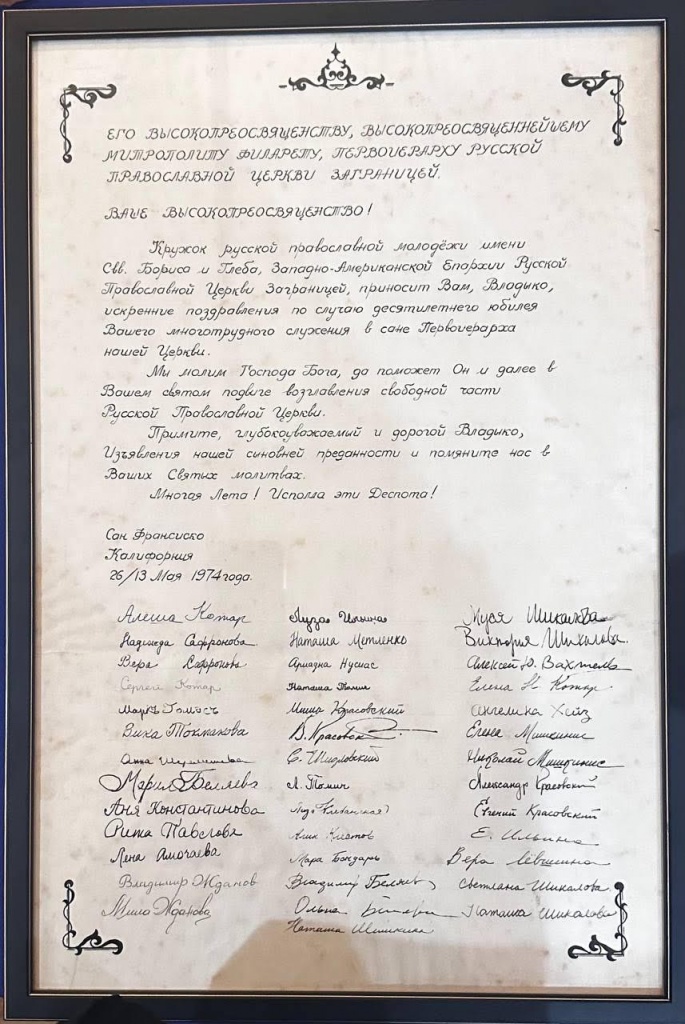 ЕГО ВЫСОКОПРЕОСВЯЩЕНСТВУ, ВЫСОКОПРЕОСВЯЩЕННЕЙШЕМУ
МИТРОПОЛИТУ ФИЛАРЕТУ, ПЕРВОИЕРАРХУ РУССКОЙ
ПРАВОСЛАВНОЙ ЦЕРКВИ ЗАГРАНИЦЕЙ.
ВАШЕ ВЫСОКОПРЕОСВЯЩЕНСТВО!
Кружок русской православной молодёжи имени
Свв. Бориса и Глеба, Западно-Американской Епархии Русской
Православной Церкви Заграницей, приносит Вам, Владыко,
искренние поздравления по случаю десятилетнего юбилея
Вашего многотрудного служения в сане Первоиерарха
нашей Церкви.
Мы молим Господа Бога, да поможет Он и далее в
Вашем святом подвиге возглавления свободной части
Русской Православной Церкви.
Примите, глубокоуважаемый и дорогой Владыко,
Изъявления нашей сыновней преданности и помяните нас в
Ваших Святых молитвах.
Многая Лета! Исполла эти Деспота!
Сан Франсиско
Калифорния
26/13 Мая 1974 года.
Алеша Котар
Надежда Сафронова
Вера Сафронова
Сергей Котар
Маркъ Гомосъ
Вика Токмакова
Анна
Мария Беляева
Аня Константинова
Рита Павлова
Лена Амочаева
Владимир Жданов
Миша Жданова
Ильина
Наташа Метленко
Ариадна
Наташа
Миша Красовский
В. Красовск
С. Шидловский
А. Томич
Алик
Мара Бондарь
Владимір Беляев
Ольга
Наташа Шишкина
Муся Шикалова
Виктория Шикалова
Алексей Ю. Вахтель
Елена Н Котар
Ангелина Хейз
Елена Мишкинис
Николай Мишкинис
Александр Красовский
Евгений Красовский
Е. Ильина
Вера Лёвшина
Светлана Шикалова
Наташа Шикалова